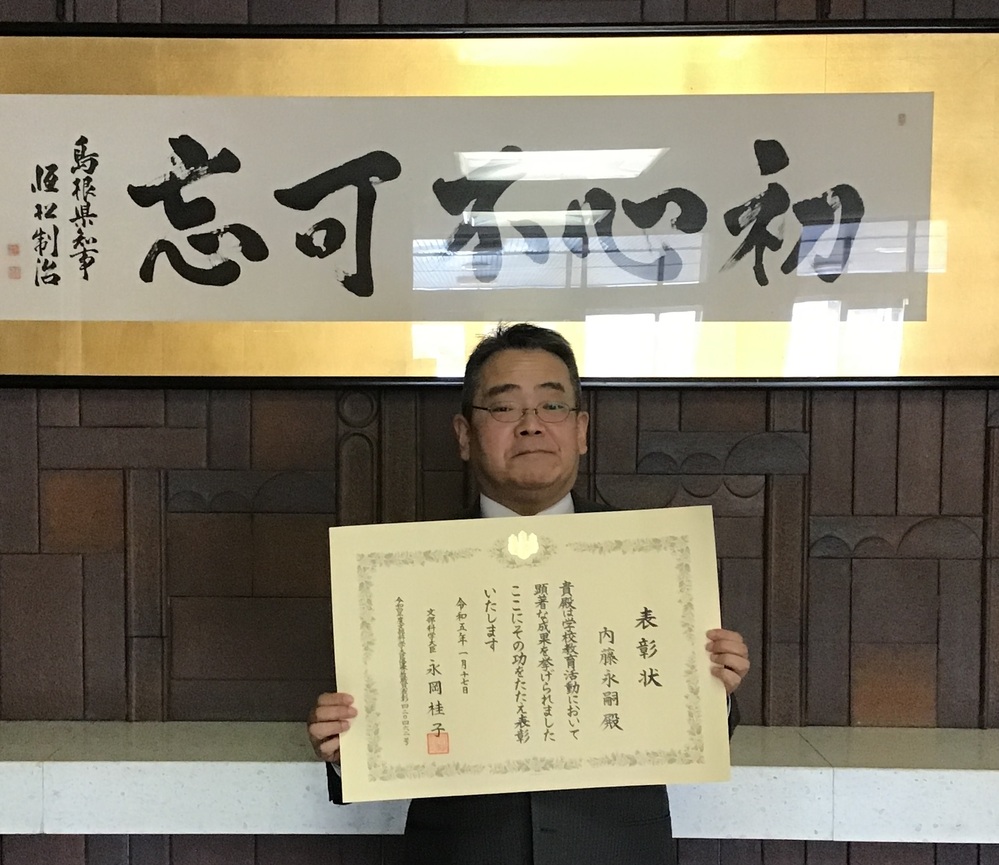 初心不可忘
島根県知事
恒松制治
表彰状
内藤永嗣殿
貴殿は学校教育活動において
顕著な成果を挙げられました
ここにその功をたたえ表彰
いたします
令和五年一月十七日
文部科学大臣 永岡桂子